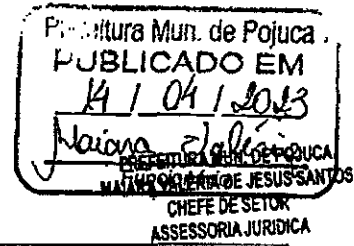 Prefeitura Mun. de Pojuca
PUBLICADO EM
14 / 04 / 2023
Maiara Valéria
PREFEITURA MUN. DE POJUCA
MAIARA VALERIA DE JESUS SANTOS
CHEFE DE SETOR
ASSESSORIA JURIDICA